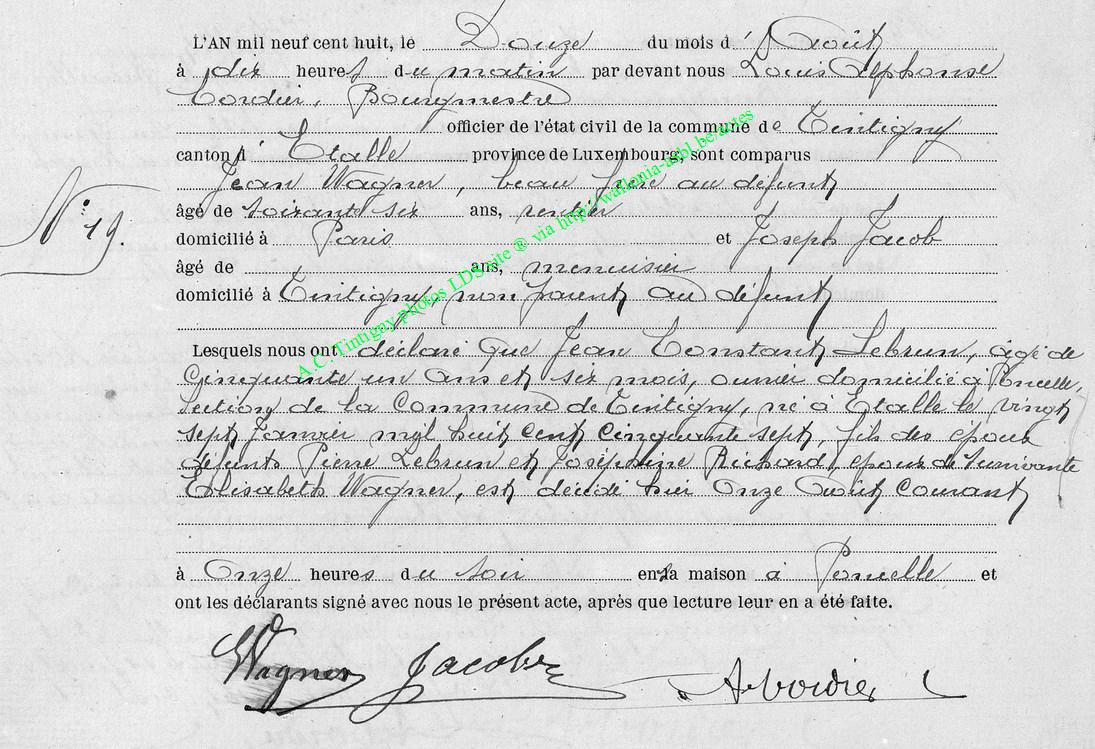 L'AN mil neuf cent huit, le Douze du mois d' Août
à dix heures du matin par devant nous Louis Alphonse
Cordier, Bourgmestre
officier de l'état civil de la commune de Tintigny
canton d' Etalle province de Luxembourg, sont comparus
Jean Wagner, beau frère au défunt
âgé de soixante six ans, rentier
N° 19.
domicilié à Paris et Joseph Jacob
âgé de ans, menuisier
domicilié à Tintigny, non parent au défunt
Lesquels nous ont déclaré que Jean Constant Lebrun, âgé de
cinquante un ans et six mois, ouvrier domicilié à Poncelle,
section de la Commune de Tintigny, né à Etalle le vingt
sept Janvier mil huit cent cinquante sept, fils des époux
défunts Pierre Lebrun et Joséphine Richard, époux de survivante
Elisabeth Wagner, est décédé hier Onze Août courant
à Onze heures du soir en sa maison à Poncelle et
ont les déclarants signé avec nous le présent acte, après que lecture leur en a été faite.
Wagner Jacob A. Cordier
A.C. Tintigny photos LDS site ® via http://wallonia-asbl.be/antes